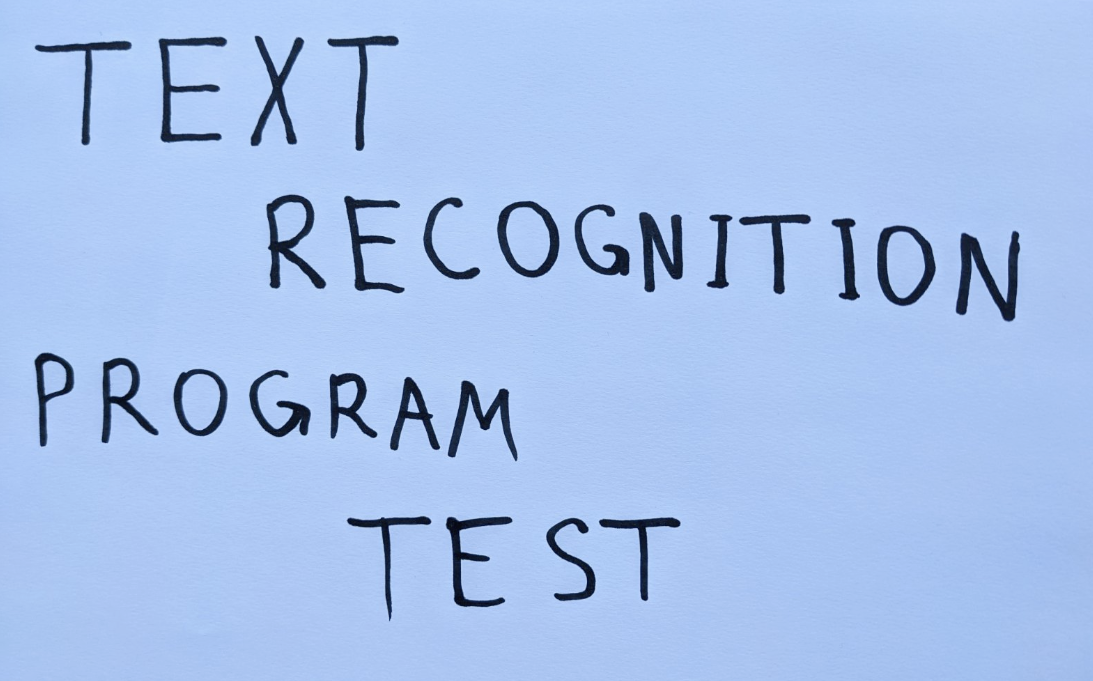 TEXT
RECOGNITION
PROGRAM
TEST